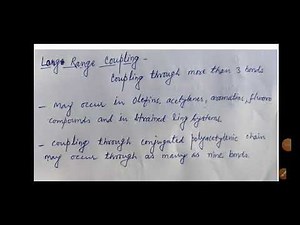 Long Range Coupling -
Coupling through more than 3 bonds
- May occur in Olefins, acetylenes, aromatics, fluoro
compounds and in strained ring systems
- coupling through conjugated polyacetylenic chain
may occur through as many as nine bonds.